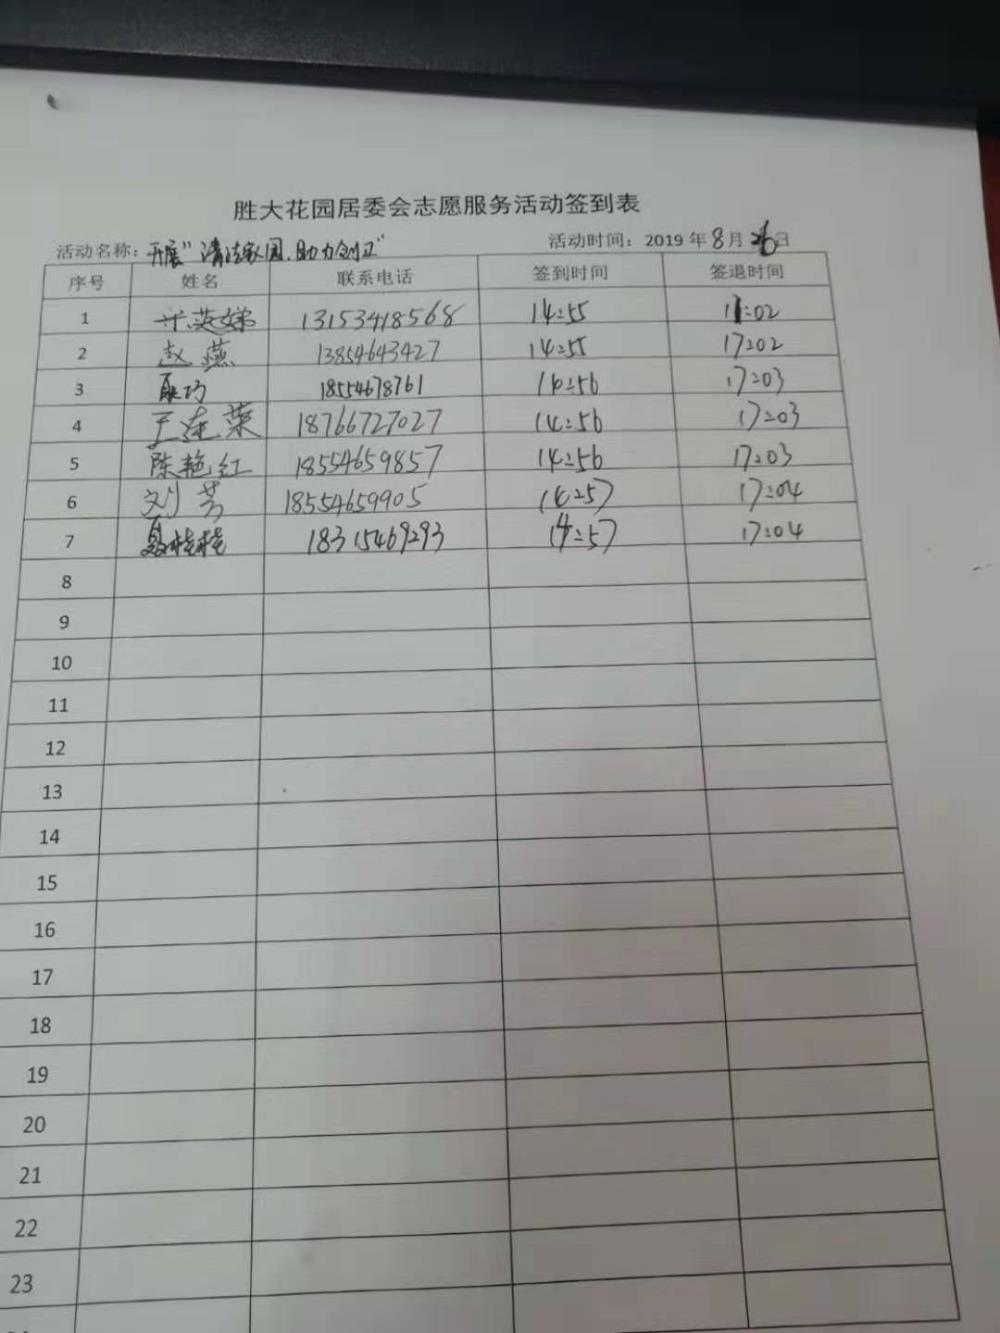 胜大花园居委会志愿服务活动签到表
活动名称：开展"清洁家园.助力创卫" 活动时间：2019年8月26日
序号 姓名 联系电话 签到时间 签退时间
1 英娣 13153418568 14:55 :02
2 赵燕 13854643427 14:55 17:02
3 巧 18554678761 14:56 17:03
4 王连荣 18766727027 14:56 17:03
5 陈艳红 18554659857 14:56 17:03
6 刘芳 18554659905 14:57 17:04
7 聂桂桂 18315469293 14:57 17:04
8
9
10
11
12
13
14
15
16
17
18
19
20
21
22
23